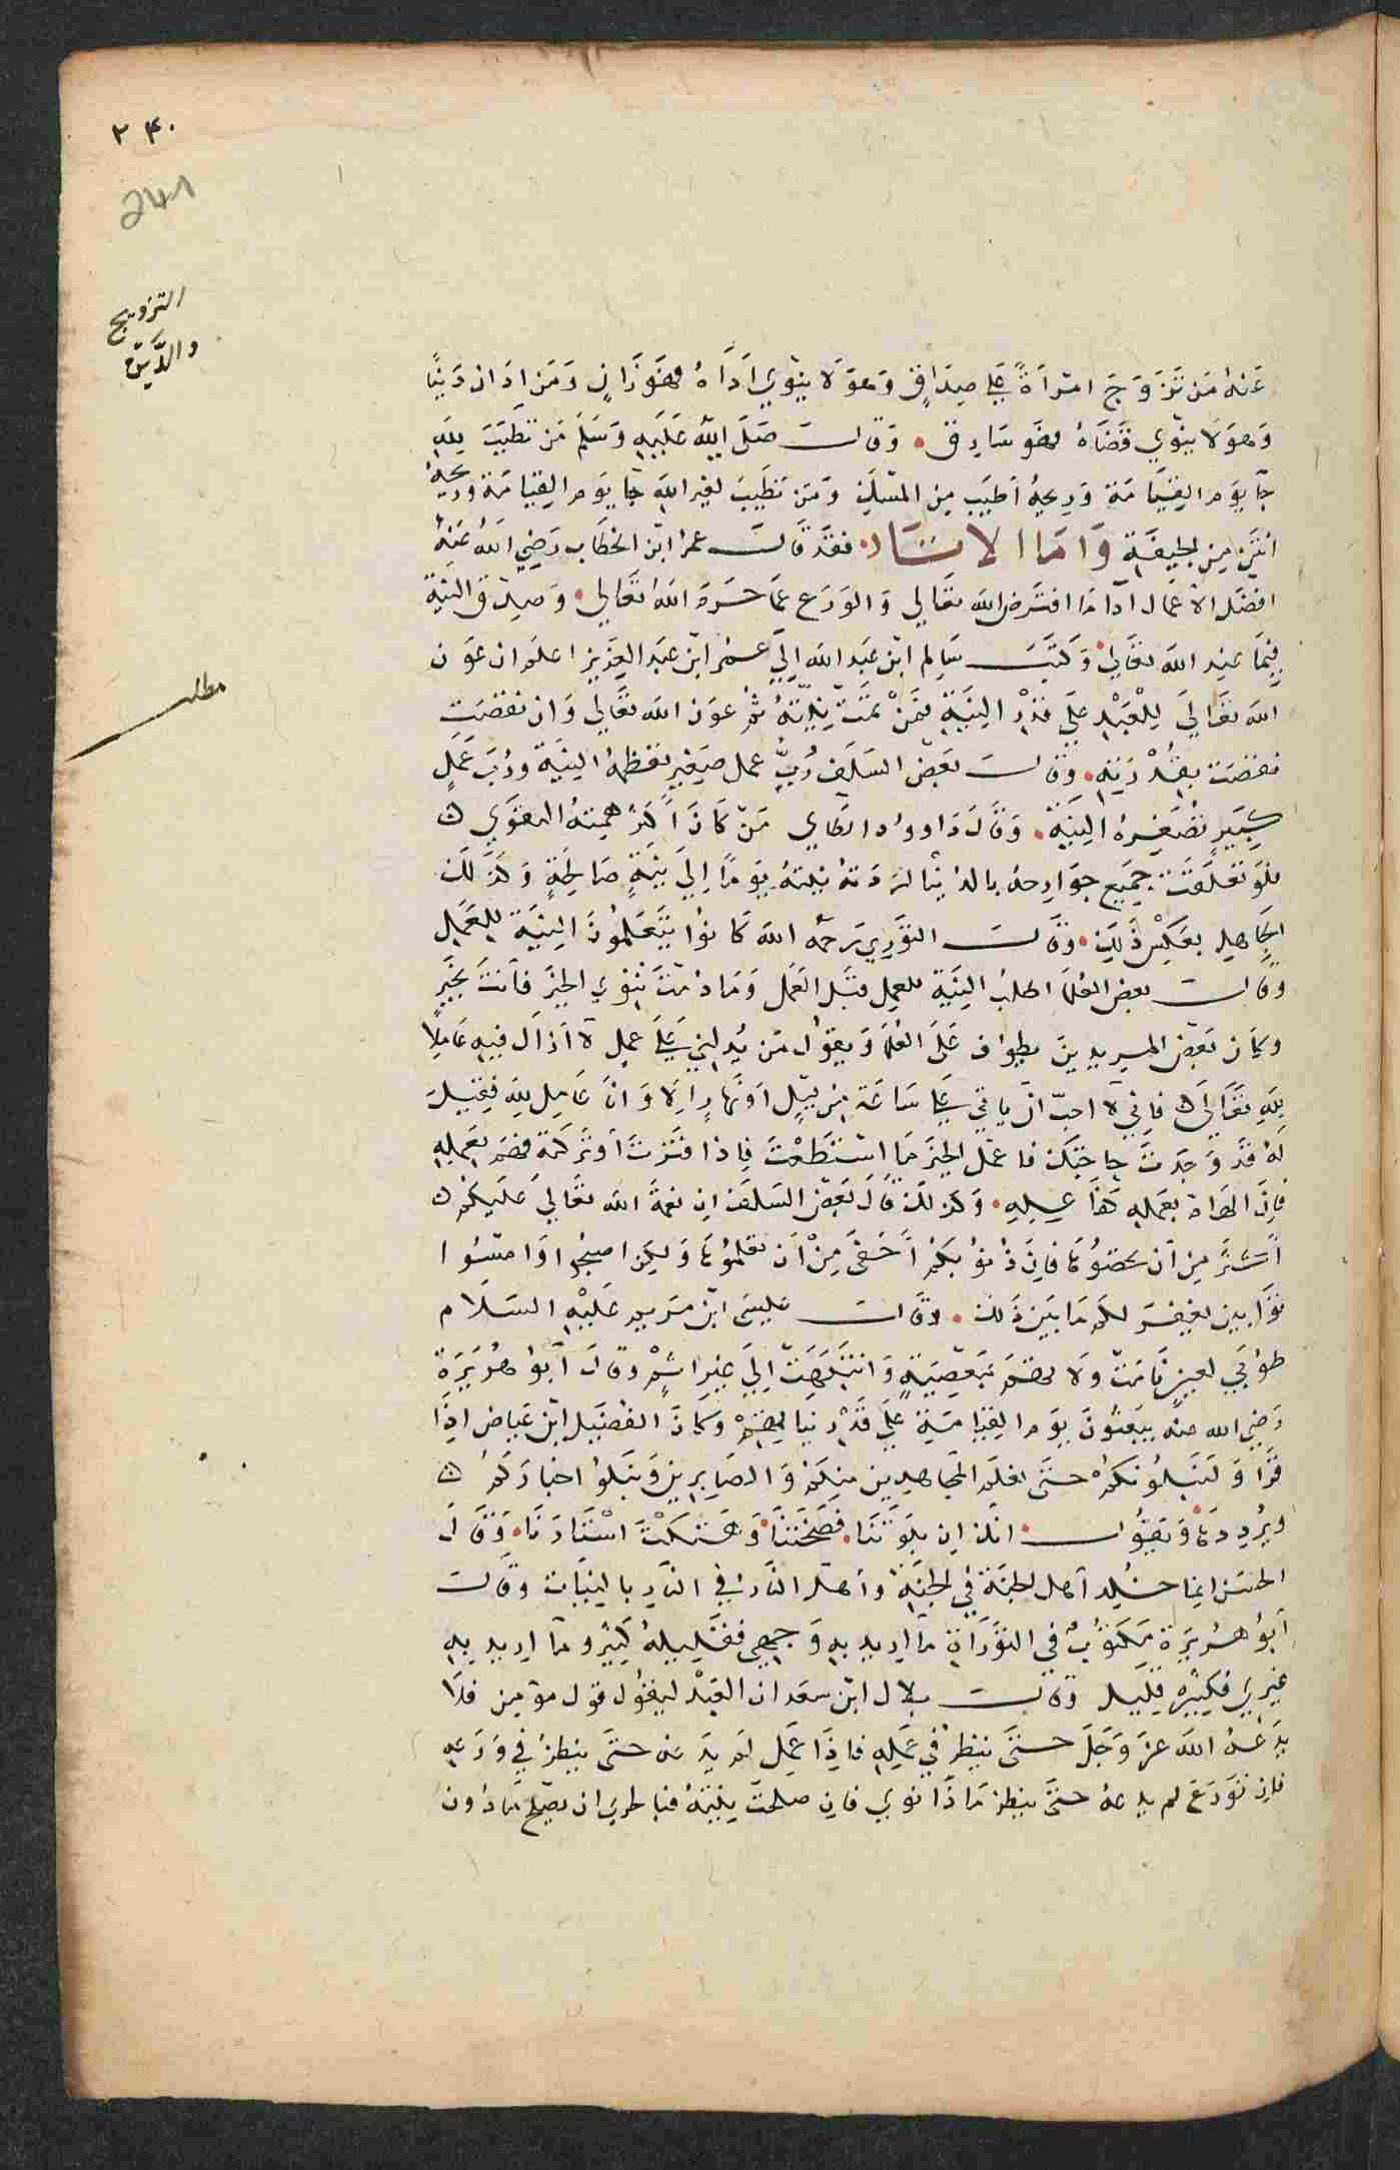 ٢٤٠
241
التزويج
والدين
مطلب
عَنهُ مَن تَزَوَجَ امْرَأةً عَلى صِدَاقٍ وَهوَ لَا ينوي اَدَاهُ فهوَ زَانٍ وَمَن ادَان دَينًا
وَهوَ لَا ينوي قَضَاهُ فهو سَارِق • وَقَالَ صَلَى اللّه عَلَيهِ وَسَلَمَ مَن تطَيَبَ لِلَهِ
جَا يوَم القِيَامَة وَرِيحُهُ اَطيَب مِن المسْكِ وَمَن تطَيبَ لغير اللَه جَا يوَم القِيَامَة وريحهُ
انتَن مِن الجيفَةِ وَامَا الاثار • فقَد قَالَ عمر ابن الخطَاب رَضِي اللَهُ عَنهُ
افضَل الاعْمَال ادَا مَا افتَرض اللَه تعَالى وَالوَرَع عمَا حَرَمَ اللَه تعَالى • وَصِدق النيَة
فيمَا عِند اللَه تعَالى • وَكَتَبَ سَالم ابن عَبد اللَه اِلى عمر ابن عَبد العَزيز اعلَم ان عَون
اللَه تعَالَى لِلْعَبْدِ عَلى قَدْر النِيَةِ فمَنْ تمَت نِيتُهُ تمَ عَون اللَه تعَالى وَان نقصَت
نقصَت بقَدْرِهِ • وَقَالَ بعَض السَلَف رُبَّ عمل صَغير تعَظمهُ النِيَة وَرُبَ عَمَلٍ
كَبيرٍ تصَغِرهُ النِيَة • وَقَالَ دَاوود الطَاي مَن كَانَ اَكبَر همتهُ التقوَي
فلَو تعَلَقَت جَميع جوَارِحهُ بالدنيَا لرَدَتهُ نيتهُ يَومًا اِلَى نيَةٍ صَالِحَةٍ وَكذَلكَ
الجَاهِل بعَكسِ ذَلِكَ • وَقَالَ الثوَري رَحمَه اللَه كَانوا يتَعَلمُونَ النِيَة للعَمَلِ
وَقَالَ بعض العُلمَا اطلبُ النِيَةَ للعمِلِ قبَل العَمَل وَمَا دُمْتَ تنْوِي الخيَر فأنتَ بخَيرٍ
وَكَان بَعض المريدينَ يطوف عَلَى العُلمَا وَيقول مَن يدلني عَلَى عمل لا ازَال فيهِ عَامِلا
لِلَه تعَالَى فاني لا احبّ ان ياتي عَلَي سَاعَة مِن لَيلٍ اَو نهَارٍ اِلا وَانَا عَامِل لِلَه فقيلَ
لهُ قدَ وَجَدتَ حَاجَتكَ فاعمَل الخيَر مَا استَطَعْتَ فاِذَا فَترْتَ اَو تَركتَهُ فهَمَ بعَملِهِ
فاِنَ الهَامَ بعَملهِ كفَاعِلِهِ • وَكذلكَ قَالَ بَعض السَلَف ان نعمَةَ اللَه تعَالى عَلَيكم
اَكثَر مِن اَن تحصُوهَا فاِنَ ذُنوبكم اَخفَى مِنْ اَن تعلمُوهَا وَلكِن اصبحُوا وَامسُوا
توَابين يغفِر لكم مَا بَين ذَلكَ • وقَالَ عيسَى ابن مَريم عَليْهِ السَلَام
طوبَى لعينٍ نَامَت وَلا تهم بمَعصِيَةٍ وَانتَبَهَت اِلَى غيرِ اثمٍ وقَالَ اَبو هُرَيرَة
رَضِي اللَه عنه يبعَثُونَ يوَم القيَامَة عَلَى قَدْر نيَاتهِمْ وَكَانَ الفضَيل ابن عيَاض اِذَا
قَرَا وَلَنَبلُوَنكمُ حتَى نعلَم المجاهدين مِنكم وَالصَابِرين وَنبَلو اخبَارَكمُ
وَيُردِدهَا وَيقول • انكَ ان بلَوتَنَا • فضَحتَنَا • وَهتَكْتَ اسْتَارَنَا • وَقَالَ
الحسَن انما خلد اَهل الجنَة في الجنَةِ وَاهل النَار في النَار بالنيَات وَقَالَ
اَبو هُرَيرَة مَكتوبٌ في التوَرَاة مَا اريد بِهِ وَجهي فقَليلهُ كَثير ومَا اريد بِهِ
غيرِي فكثيره قليل وَقَالَ بلال ابن سعَد ان العَبْد ليقول قول مؤمن فلَا
يدَعهُ اللَه عَز وَجَلَ حتَى ينظر في عَمَلهِ فاِذَا عَمِل لم يدَعه حتَى ينظر في وَرَعهِ
فاِن توَرَعَ لم يدعهُ حتَى ينظر مَاذَا نوي فاِن صلحَت نِيتهُ فبالحري ان يصلح مَا دون